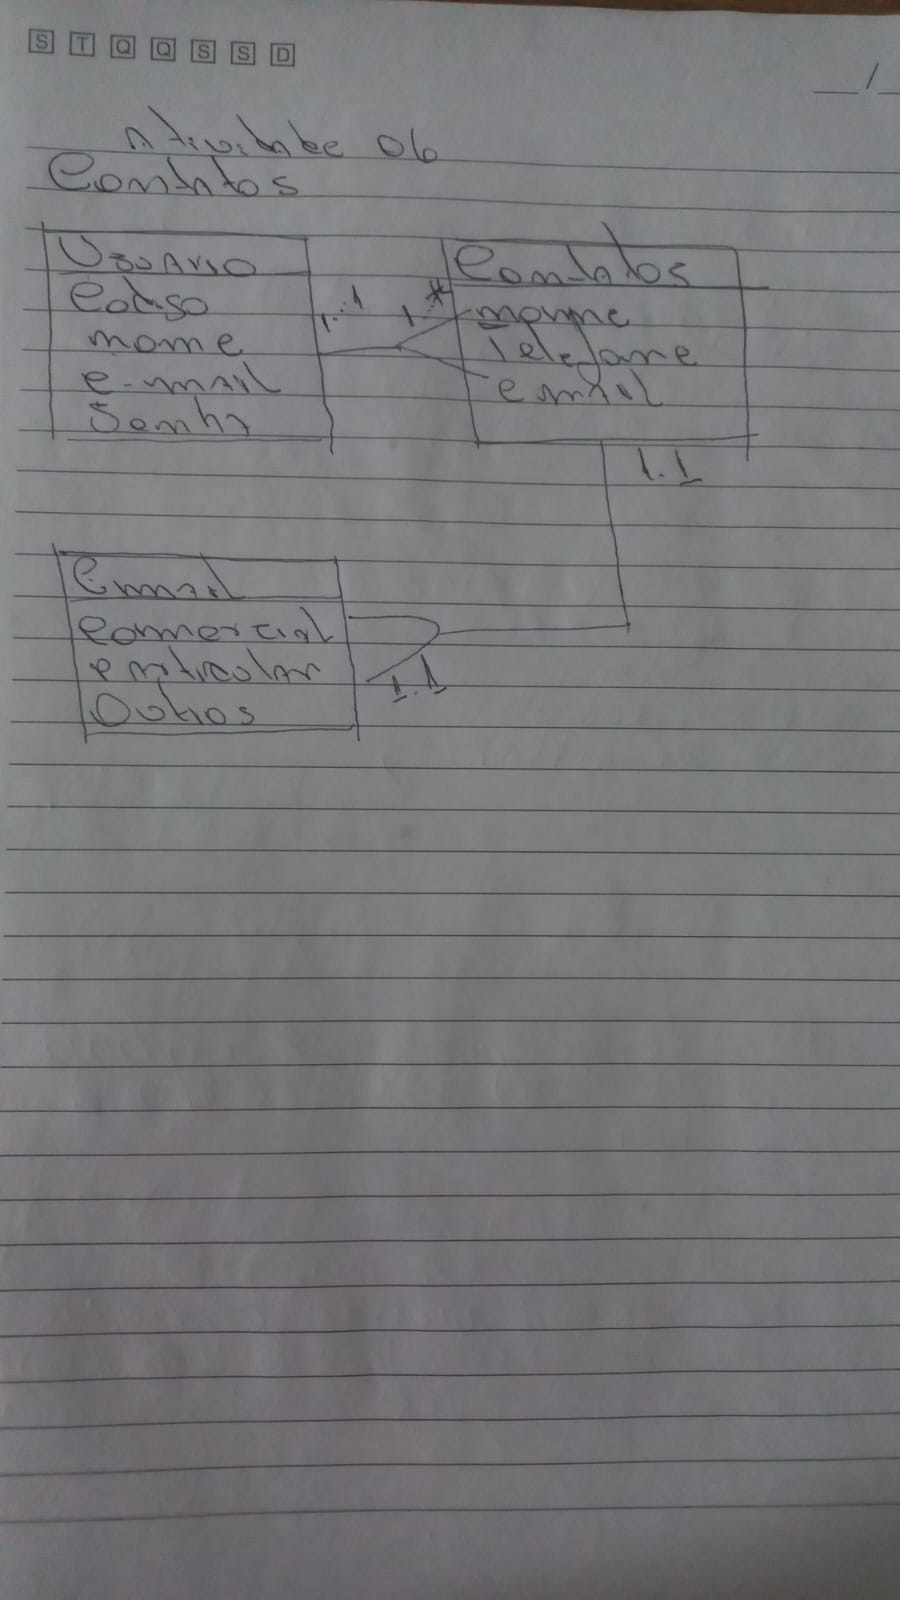 S T Q Q S S D
__/__
Atividade 06
Contatos
Usuario
Codigo
nome
e-mail
Senha
1..1
1 *
Contatos
nome
Telefone
email
1.1
Email
comercial
particular
Outros
1.1